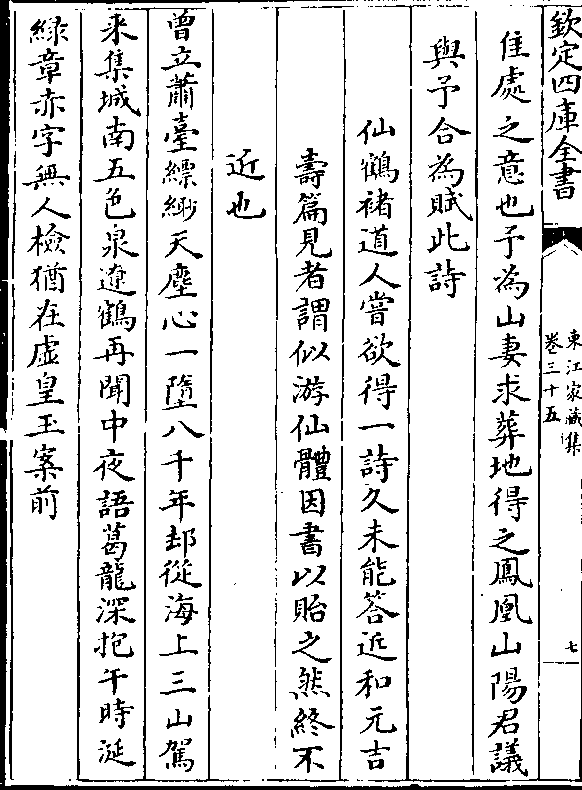 欽定四庫全書
東江家藏集
卷三十五
七
隹處之意也予為山妻求葬地得之鳳凰山陽君議
與予合為賦此詩
仙鶴褚道人嘗欲得一詩久未能答近和元吉
壽篇見者謂似游仙體因書以貽之然終不
近也
曾立蕭臺縹緲天塵心一墮八千年却從海上三山駕
來集城南五色泉遼鶴再聞中夜語葛龍深抱午時涎
綠章赤字無人檢猶在虛皇玉案前